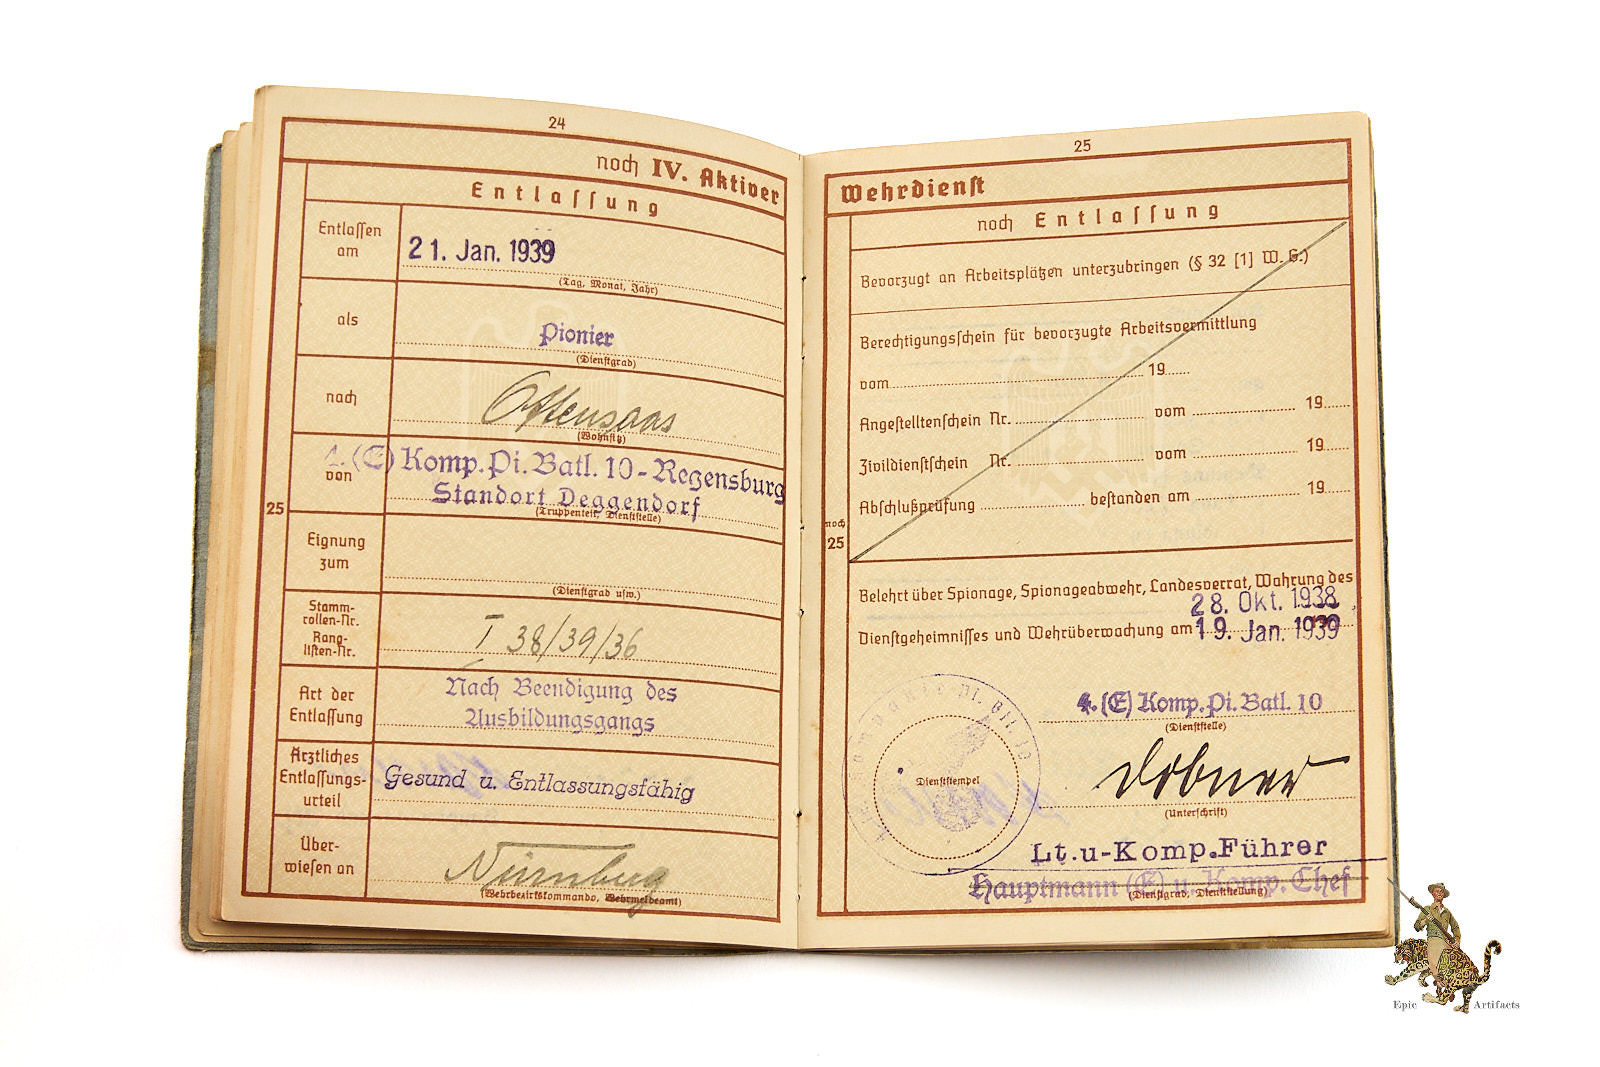 24
noch IV. Aktiver
Entlassung
Entlassen am
21. Jan. 1939
(Tag, Monat, Jahr)
als
Pionier
(Dienstgrad)
nach
Ottensoos
(Wohnsitz)
25
von
4.(E) Komp.Pi.Batl. 10-Regensburg
Standort Deggendorf
(Truppenteil, Dienststelle)
Eignung zum
(Dienstgrad usw.)
Stamm-
rollen-Nr.
Rang-
listen-Nr.
I 38/39/36
Art der
Entlassung
Nach Beendigung des
Ausbildungsgangs
Ärztliches
Entlassungs-
urteil
Gesund u. Entlassungsfähig
Über-
wiesen an
Nürnberg
(Wehrbezirkskommando, Wehrmeldeamt)
25
Wehrdienst
noch Entlassung
Bevorzugt an Arbeitsplätzen unterzubringen (§ 32 [1] W. G.)
Berechtigungsschein für bevorzugte Arbeitsvermittlung
vom 19
Angestelltenschein Nr. vom 19
Zivildienstschein Nr. vom 19
Abschlußprüfung bestanden am 19
noch
25
Belehrt über Spionage, Spionageabwehr, Landesverrat, Wahrung des
28. Okt. 1938
Dienstgeheimnisses und Wehrüberwachung am 19. Jan. 1939
4.(E) Komp.Pi.Batl. 10
(Dienststelle)
Dienststempel
(Unterschrift)
Lt.u-Komp.Führer
Hauptmann (E) u. Komp.Chef
(Dienstgrad, Dienststellung)
Epic Artifacts